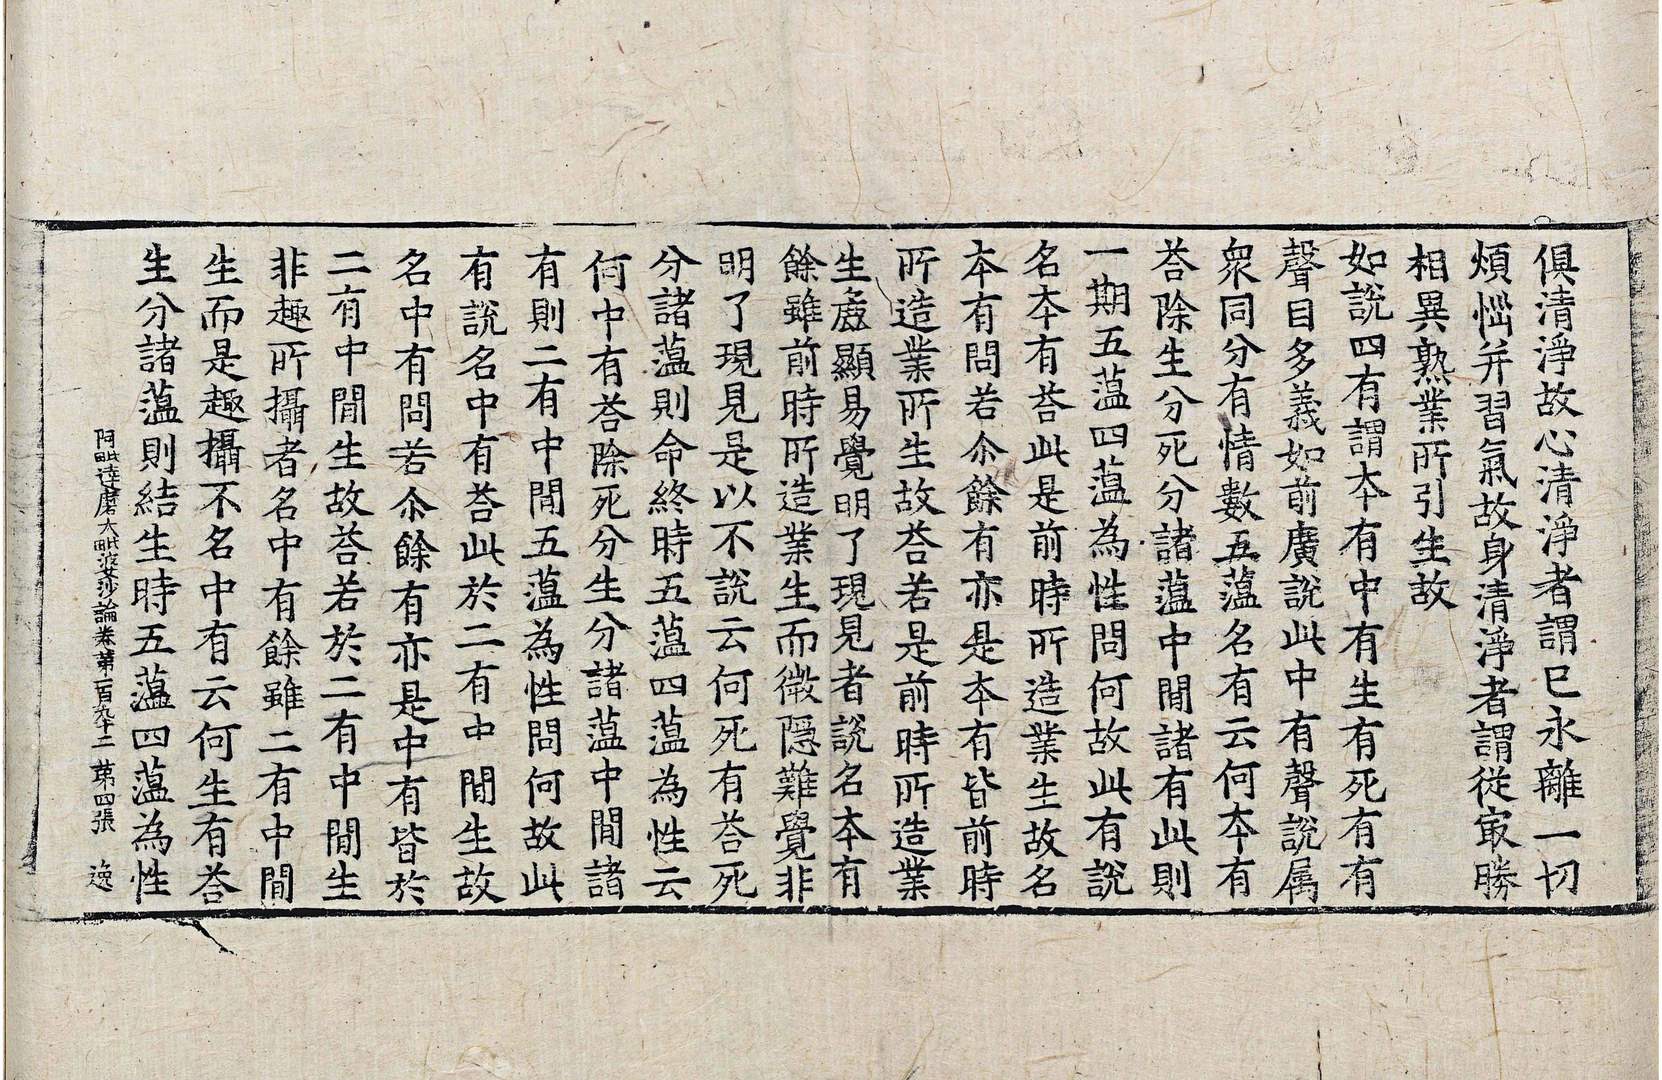 俱清淨故心清淨者謂已永離一切
煩惱并習氣故身清淨者謂從㝡勝
相異熟業所引生故
如說四有謂本有中有生有死有有
聲目多義如前廣說此中有聲說属
衆同分有情數五蕰名有云何本有
荅除生分死分諸蕰中閒諸有此則
一期五蕰四蕰為性問何故此有說
名本有荅此是前時所造業生故名
本有問若尒餘有亦是本有皆前時
所造業所生故荅若是前時所造業
生麁顯易覺明了現見者說名本有
餘雖前時所造業生而微隱難覺非
明了現見是以不說云何死有荅死
分諸蕰則命終時五蕰四蕰為性云
何中有荅除死分生分諸蕰中閒諸
有則二有中閒五蕰為性問何故此
有說名中有荅此於二有中閒生故
名中有問若尒餘有亦是中有皆於
二有中閒生故荅若於二有中閒生
非趣所攝者名中有餘雖二有中閒
生而是趣攝不名中有云何生有荅
生分諸蕰則結生時五蕰四蕰為性
阿毗達磨大毗婆沙論卷第一百九十二 苐四張 逸